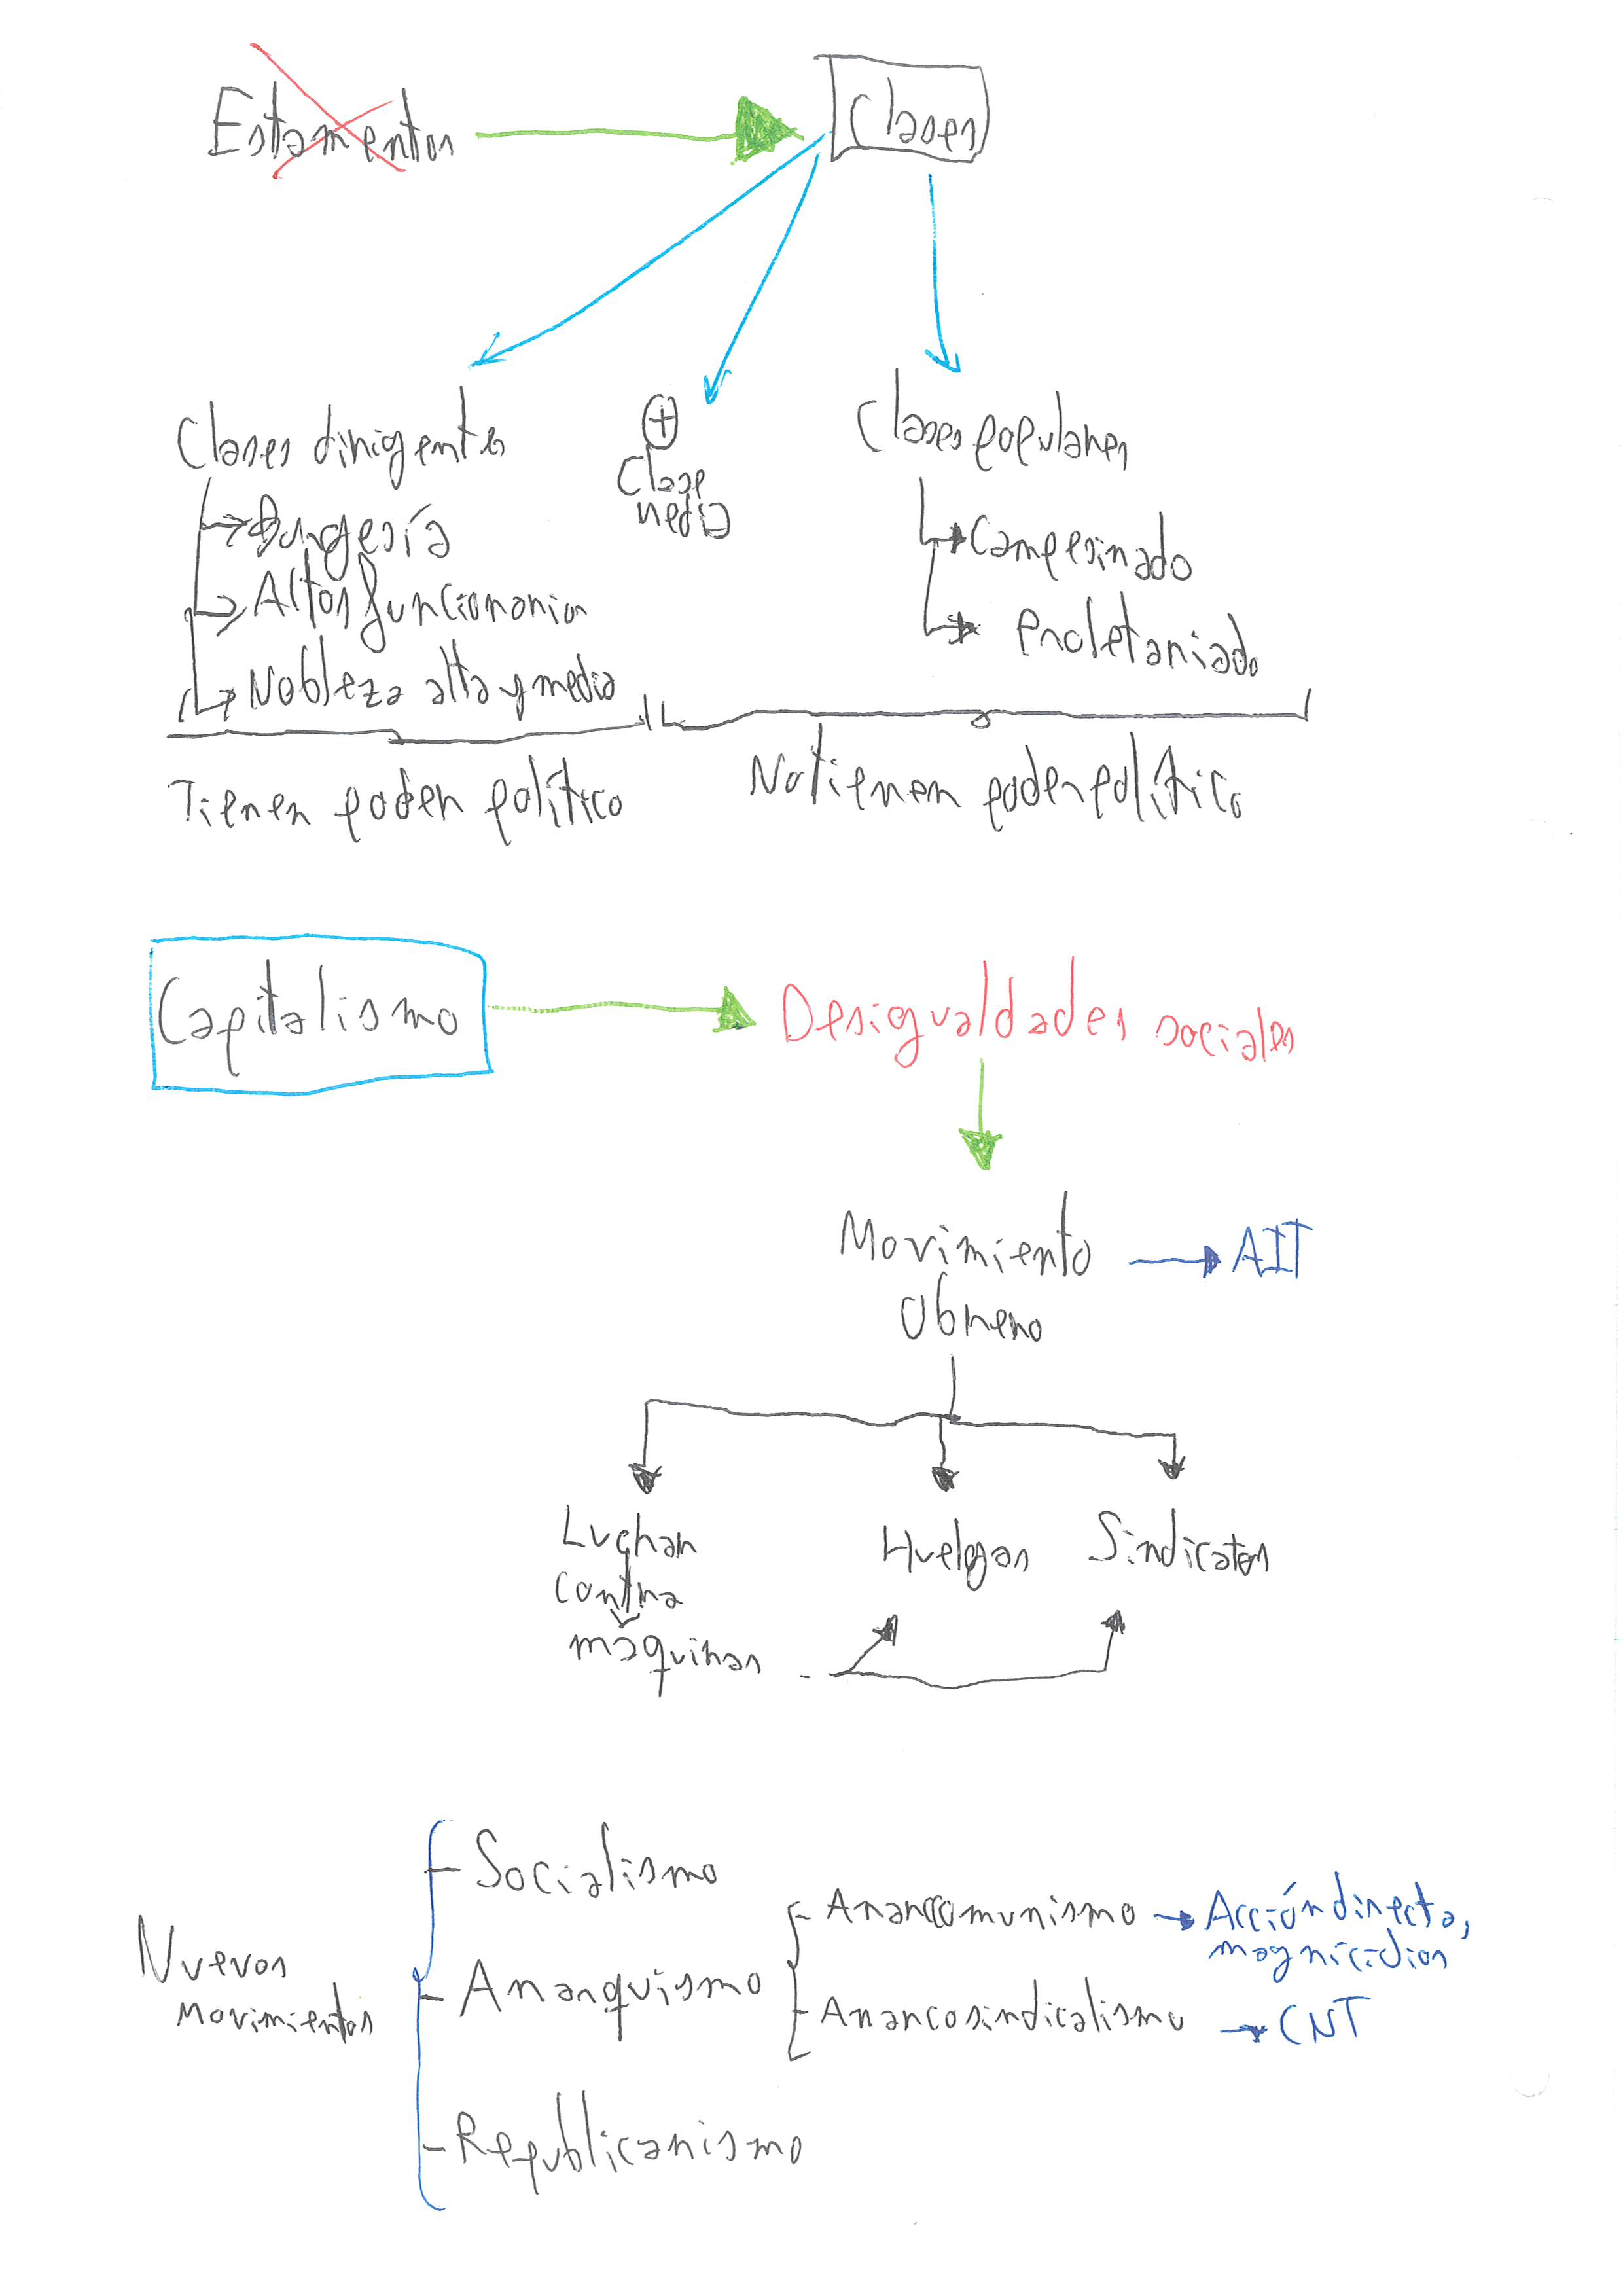 Estamentos
Clases
Clases dirigentes
Burgesía
Altos funcionarios
Nobleza alta y media
+
Clase
media
Clases populares
Campesinado
Proletariado
Tienen poder político
No tienen poder político
Capitalismo
Desigualdades sociales
Movimiento
obrero
AIT
Luchan
contra
máquinas
Huelgas
Sindicatos
Nuevos
movimientos
Socialismo
Anarquismo
Republicanismo
Anarcocomunismo
Acción directa,
magnicidios
Anarcosindicalismo
CNT